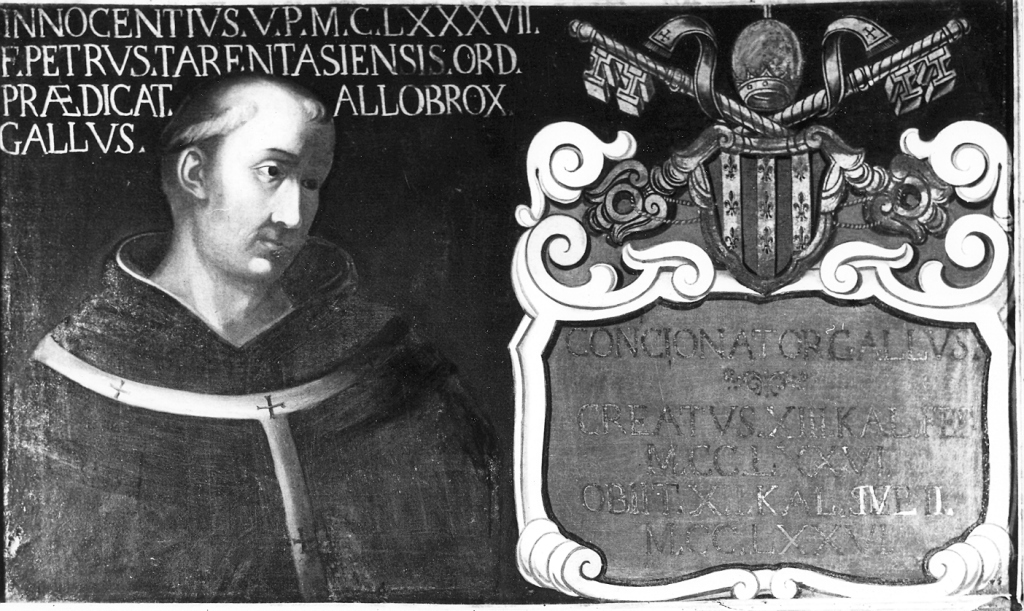 INNOCENTIVS.V.P.M.C.LXXXVII.
F.PETRVS.TARENTASIENSIS.ORD.
PRÆDICAT. ALLOBROX.
GALLVS.
CONCIONATOR GALLVS.
CREATVS.XIII KAL.FEB
M.CC.LXXVI
OBIIT. KAL.
M.CC.LXXVI